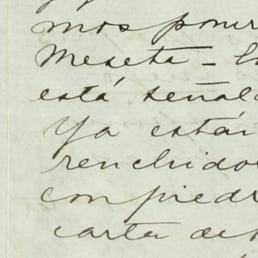 mos poner
Meseta - E
está señala
Ya están
renchido
con piedr
carta de